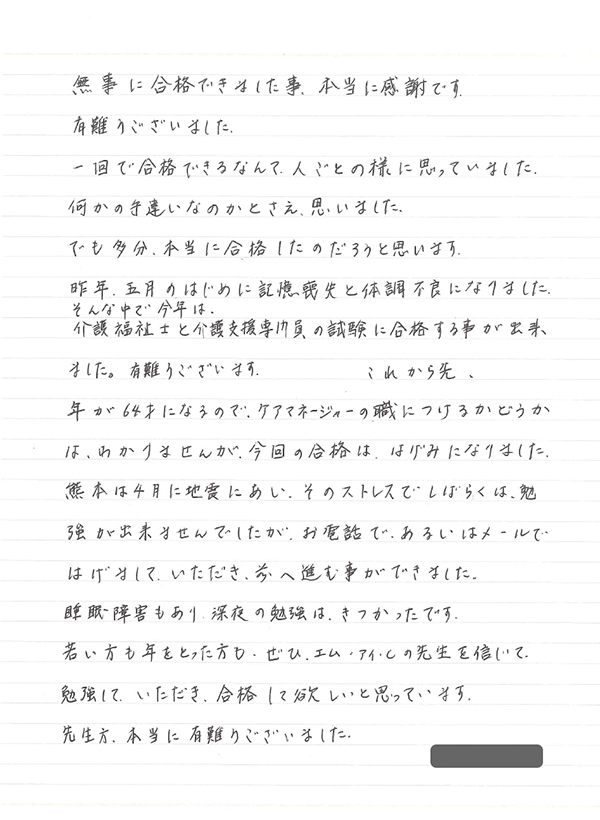 無事に合格できました事、本当に感謝です。
有難うございました。
一回で合格できるなんて、人ごとの様に思っていました。
何かの手違いなのかとさえ、思いました。
でも多分、本当に合格したのだろうと思います。
昨年、五月のはじめに記憶喪失と体調不良になりました。
そんな中で今年は、
介護福祉士と介護支援専門員の試験に合格する事が出来
ました。有難うございます。 これから先、
年が64才になるので、ケアマネージャーの職につけるかどうか
は、わかりませんが、今回の合格は、はげみになりました。
熊本は4月に地震にあい、そのストレスでしばらくは、勉
強が出来ませんでしたが、お電話で、あるいはメールで
はげまして、いただき、前へ進む事ができました。
睡眠障害もあり、深夜の勉強は、きつかったです。
若い方も年をとった方も、ぜひ、エム・アイ・Cの先生を信じて、
勉強して、いただき、合格して欲しいと思っています。
先生方、本当に有難うございました。